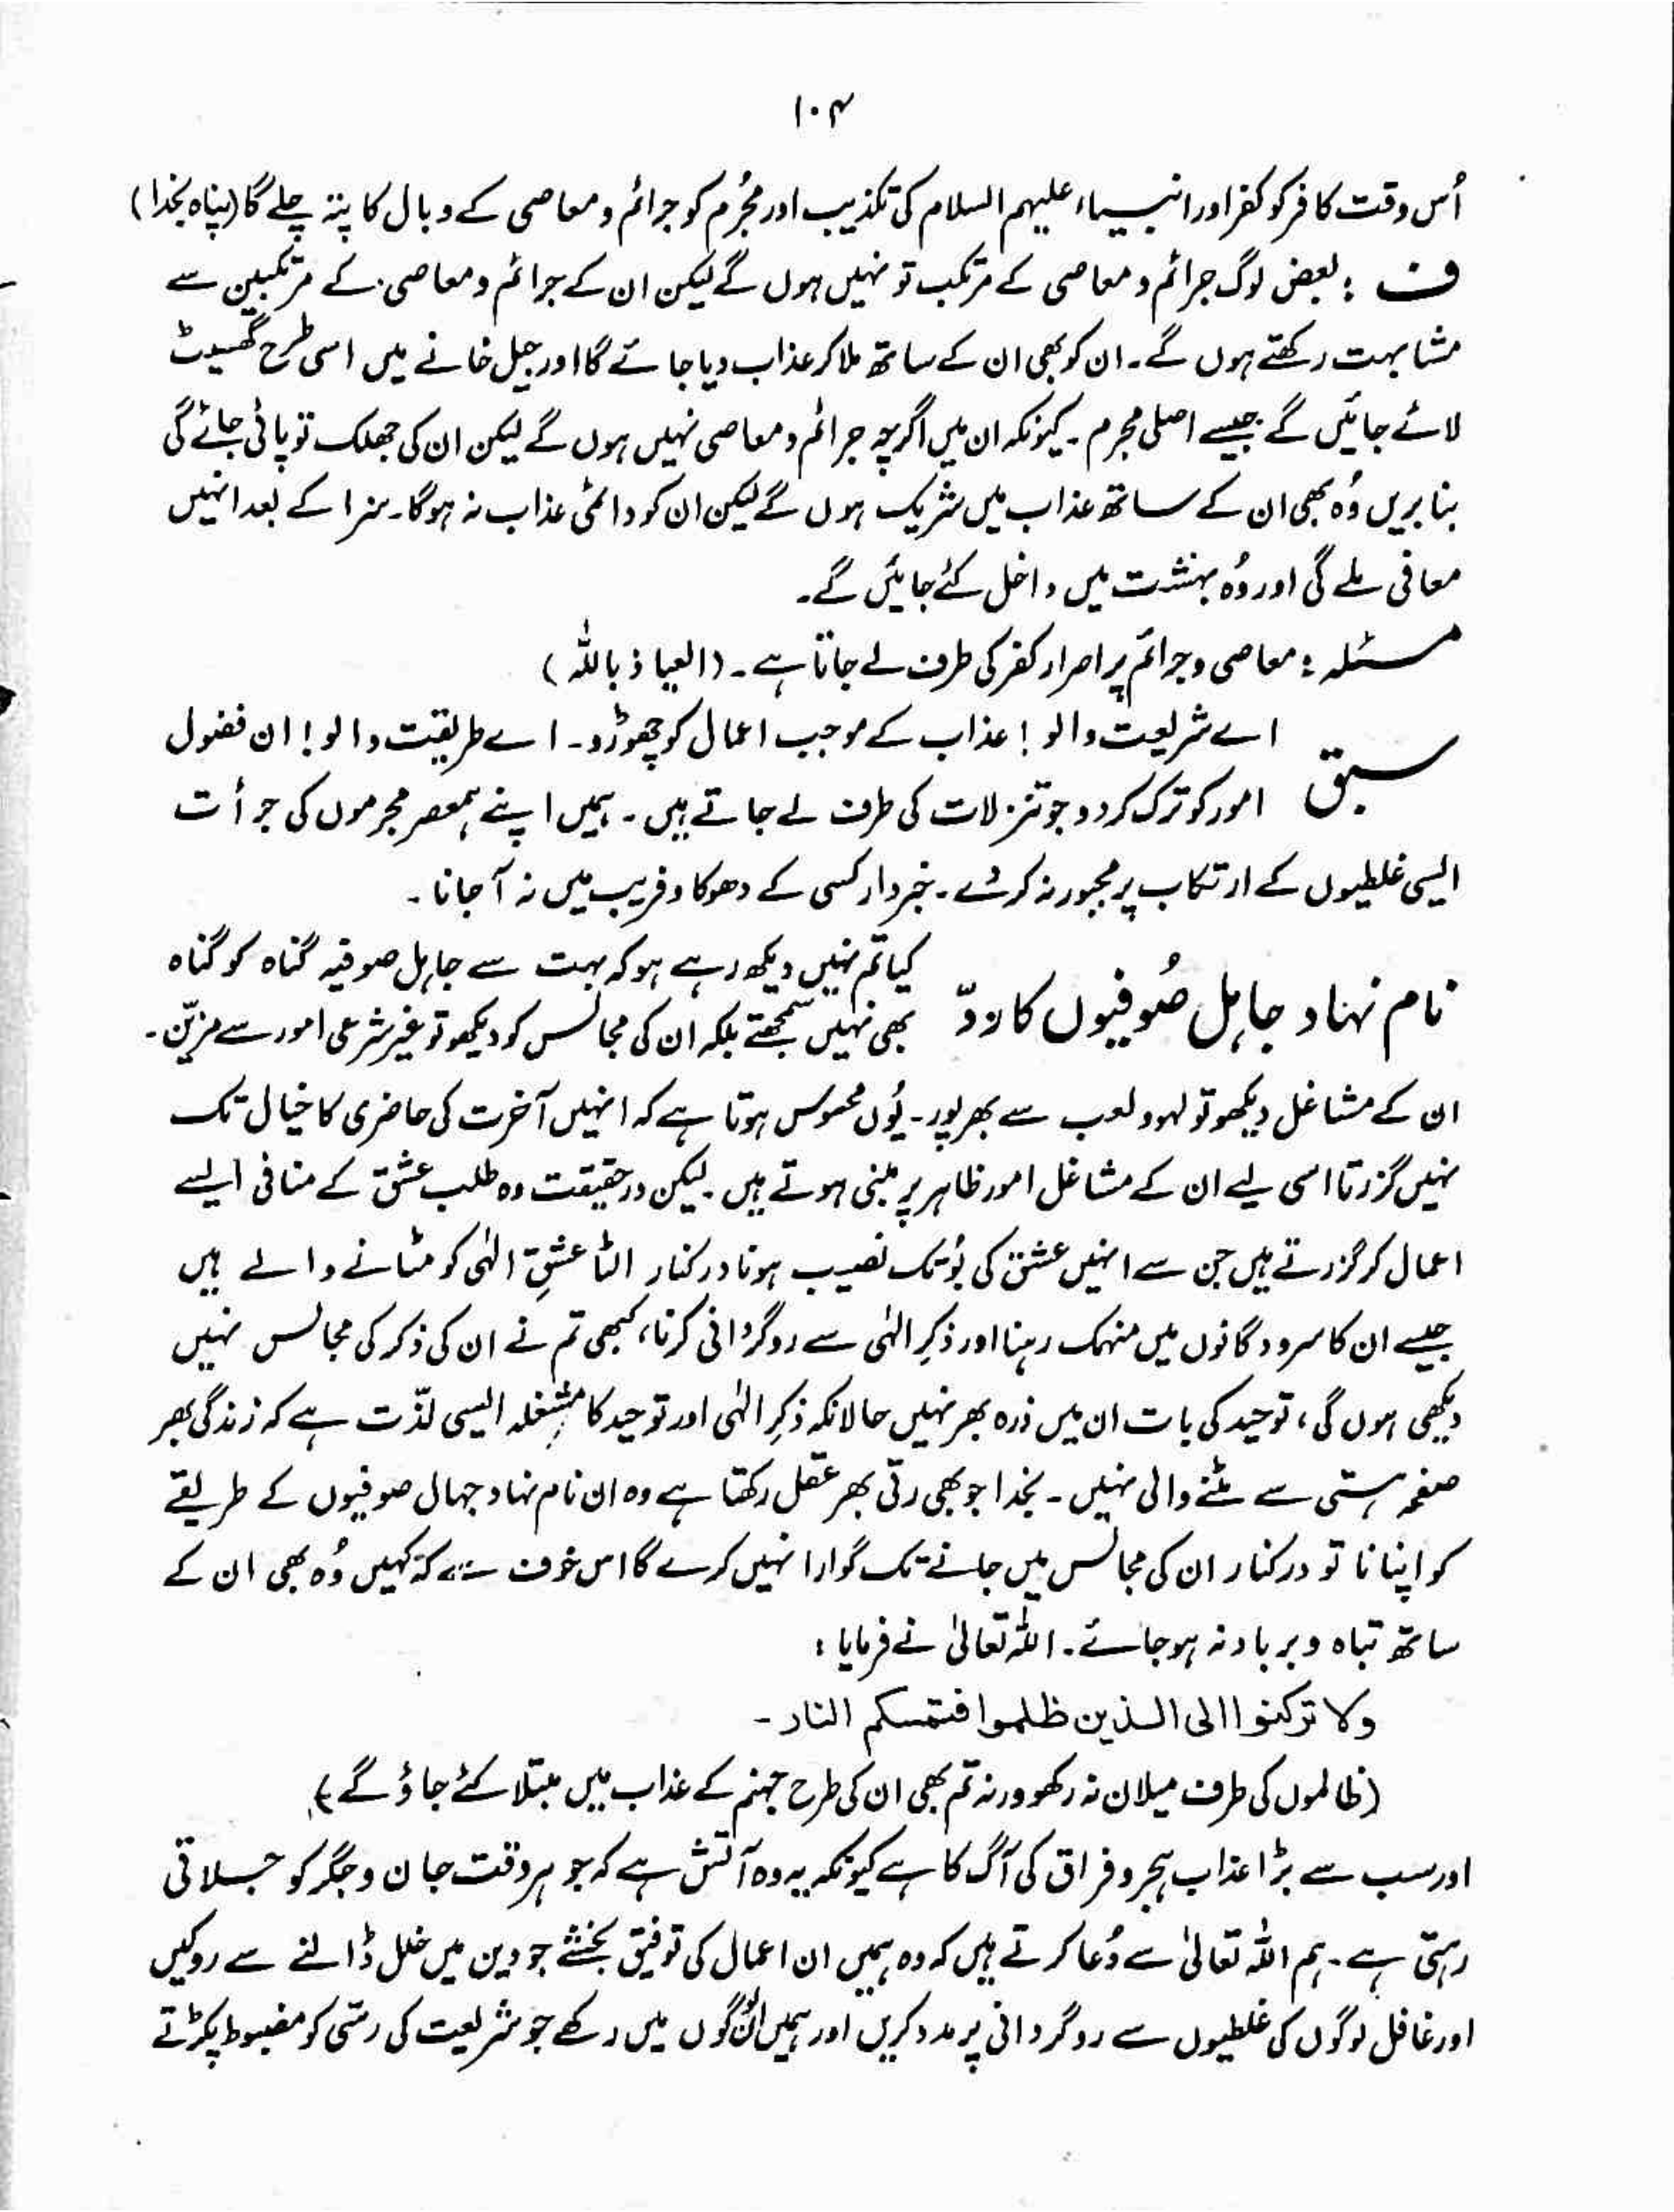 ۱۰۴
اُس وقت کافر کو کفر اور انبیاء علیہم السلام کی تکذیب اور مجُرم کو جرائم و معاصی کے وبال کا پتہ چلے گا (پناہ بخدا)
ف : بعض لوگ جرائم و معاصی کے مرتکب تو نہیں ہوں گے لیکن ان کے جرائم و معاصی کے مرتکبین سے
مشابہت رکھتے ہوں گے۔ ان کو بھی ان کے ساتھ ملا کر عذاب دیا جائے گا اور جیل خانے میں اسی طرح گھسیٹ
لائے جائیں گے جیسے اصلی مجرم۔ کیونکہ ان میں اگرچہ جرائم و معاصی نہیں ہوں گے لیکن ان کی جھلک تو پائی جائے گی
بنا بریں وُہ بھی ان کے ساتھ عذاب میں شریک ہوں گے لیکن ان کو دائمی عذاب نہ ہوگا۔ سزا کے بعد انہیں
معافی ملے گی اور وُہ بہشت میں داخل کئے جائیں گے۔
مسئلہ : معاصی و جرائم پر اصرار کفر کی طرف لے جاتا ہے۔ (العیاذ باللہ)
سبق اے شریعت والو! عذاب کے موجب اعمال کو چھوڑ دو۔ اے طریقت والو! ان فضول
امور کو ترک کر دو جو تنزلات کی طرف لے جاتے ہیں۔ ہمیں اپنے ہمعصر مجرموں کی جرأت
ایسی غلطیوں کے ارتکاب پر مجبور نہ کر دے۔ خبردار کسی کے دھوکا و فریب میں نہ آ جانا۔
نام نہاد جاہل صُوفیوں کا ردّ کیا تم نہیں دیکھ رہے ہو کہ بہت سے جاہل صوفیہ گناہ کو گناہ
بھی نہیں سمجھتے بلکہ ان کی مجالس کو دیکھو تو غیر شرعی امور سے مزیّن۔
ان کے مشاغل دیکھو تو لہو و لعب سے بھرپور۔ یُوں محسوس ہوتا ہے کہ انہیں آخرت کی حاضری کا خیال تک
نہیں گزرتا اسی لیے ان کے مشاغل امور ظاہر پر مبنی ہوتے ہیں۔ لیکن درحقیقت وہ طلب عشق کے منافی ایسے
اعمال کر گزرتے ہیں جن سے انہیں عشق کی بُو تک نصیب ہونا درکنار الٹا عشقِ الٰہی کو مٹانے والے ہیں
جیسے ان کا سرود گانوں میں منہمک رہنا اور ذکرِ الٰہی سے روگردانی کرنا، کبھی تم نے ان کی ذکر کی مجالس نہیں
دیکھی ہوں گی، توحید کی بات ان میں ذرہ بھر نہیں حالانکہ ذکرِ الٰہی اور توحید کا مشغلہ ایسی لذّت ہے کہ زندگی بھر
صفحہ ہستی سے مٹنے والی نہیں۔ بخدا جو بھی رتی بھر عقل رکھتا ہے وہ ان نام نہاد جہال صوفیوں کے طریقے
کو اپنانا تو درکنار ان کی مجالس میں جانے تک گوارا نہیں کرے گا اس خوف سے کہ کہیں وُہ بھی ان کے
ساتھ تباہ و برباد نہ ہو جائے۔ اللہ تعالیٰ نے فرمایا :
ولا ترکنوا الی الذین ظلموا فتمسکم النار۔
(ظالموں کی طرف میلان نہ رکھو ورنہ تم بھی ان کی طرح جہنم کے عذاب میں مبتلا کئے جاؤ گے)
اور سب سے بڑا عذاب ہجر و فراق کی آگ کا ہے کیونکہ یہ وہ آتش ہے کہ جو ہر وقت جان و جگر کو جلاتی
رہتی ہے۔ ہم اللہ تعالیٰ سے دُعا کرتے ہیں کہ وہ ہمیں ان اعمال کی توفیق بخشے جو دین میں خلل ڈالنے سے روکیں
اور غافل لوگوں کی غلطیوں سے روگردانی پر مدد کریں اور ہمیں ان لوگوں میں رکھے جو شریعت کی رسّی کو مضبوط پکڑتے